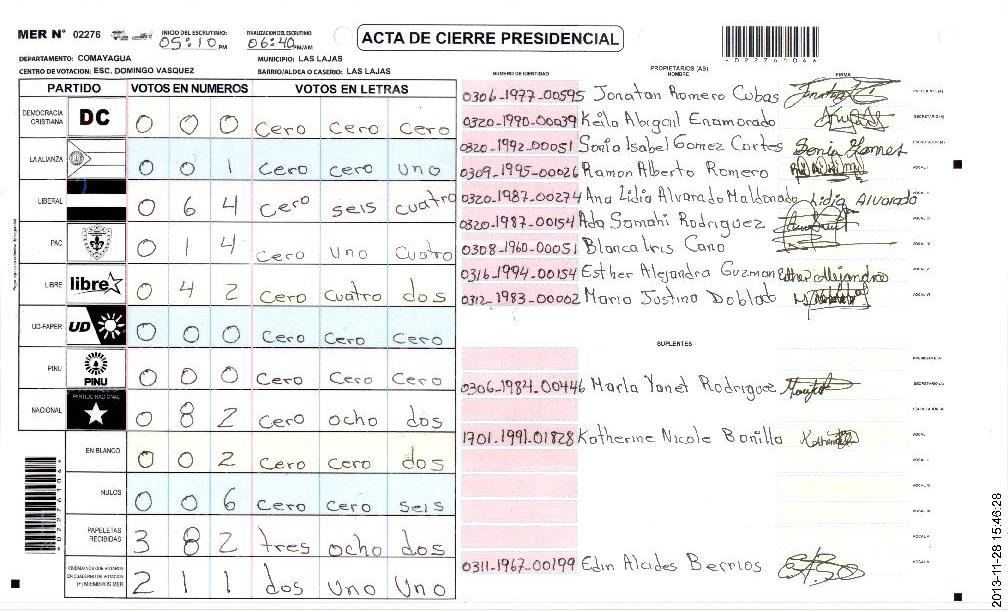 MER N° 02276 INICIO DEL ESCRUTINIO: 05:10 PM FINALIZACION DEL ESCRUTINIO 06:40 PM/AM ACTA DE CIERRE PRESIDENCIAL
DEPARTAMENTO: COMAYAGUA MUNICIPIO: LAS LAJAS
CENTRO DE VOTACION: ESC. DOMINGO VASQUEZ BARRIO/ALDEA O CASERIO: LAS LAJAS
PARTIDO VOTOS EN NUMEROS VOTOS EN LETRAS
DEMOCRACIA CRISTIANA DC 0 0 0 cero cero cero
LA ALIANZA 0 0 1 cero cero uno
LIBERAL 0 6 4 cero seis cuatro
PAC 0 1 4 cero uno cuatro
LIBRE libre 0 4 2 cero cuatro dos
UD-FAPER UD 0 0 0 cero cero cero
PINU PINU 0 0 0 cero cero cero
NACIONAL PARTIDO NACIONAL 0 8 2 cero ocho dos
EN BLANCO 0 0 2 cero cero dos
NULOS 0 0 6 cero cero seis
PAPELETAS RECIBIDAS 3 8 2 tres ocho dos
CIUDADANOS QUE VOTARON EN CUADERNO DE VOTACION (+) MIEMBROS MER 2 1 1 dos uno uno
PROPIETARIOS (AS)
NUMERO DE IDENTIDAD NOMBRE FIRMA
0306-1977-00595 Jonatan Romero Cubas PRESIDENTE(A)
0320-1990-00039 Keila Abigail Enamorado SECRETARIO(A)
0320-1992-00051 Sonia Isabel Gomez Cortes Sonia Gomes ESCRUTADOR(A)
0309-1995-00026 Ramon Alberto Romero VOCAL I
0320-1987-00274 Ana Lidia Alvarado Maldonado Lidia Alvarado
0320-1987-00154 Ada Samahi Rodriguez
0308-1960-00051 Blanca Iris Cano
0316-1994-00154 Esther Alejandra Guzman Esther Alejandra
0312-1983-00002 Mario Justino Doblado
SUPLENTES
PRESIDENTE(A)
0306-1984-00446 Marla Yanet Rodriguez SECRETARIO(A)
ESCRUTADOR(A)
1701-1991-01828 Katherine Nicole Bonilla
0311-1967-00199 Edin Alcides Berrios
2013-11-28 15:46:28